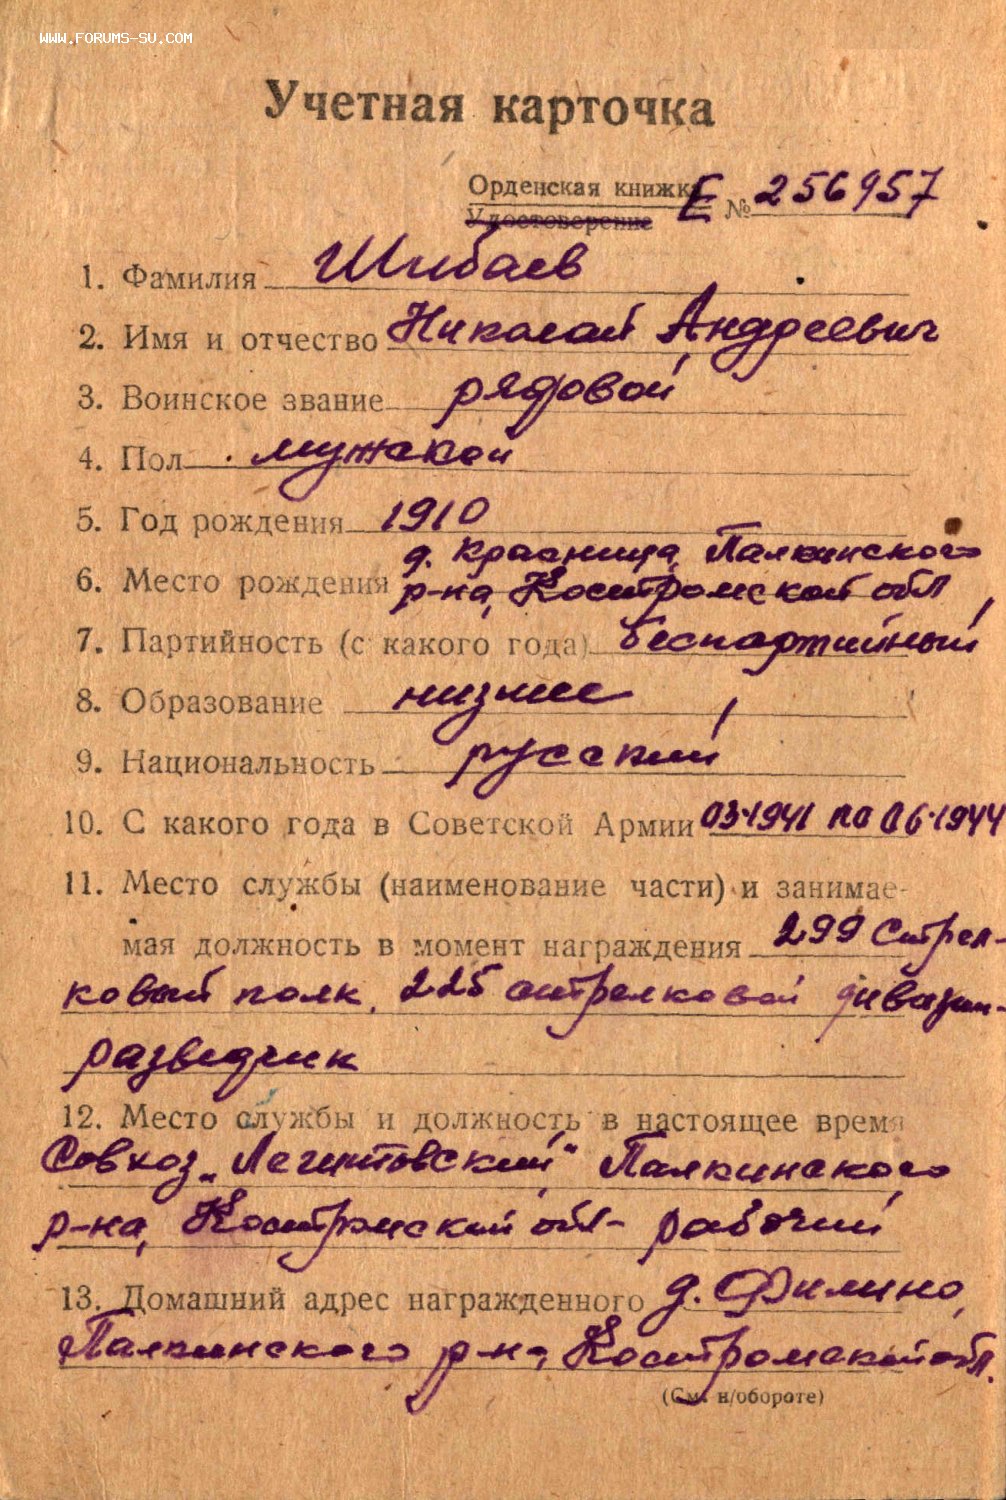 WWW.FORUMS-SU.COM
Учетная карточка
Орденская книжка Е № 256957
Удостоверение
1. Фамилия Шибаев
2. Имя и отчество Николай Андреевич
3. Воинское звание рядовой
4. Пол мужской
5. Год рождения 1910
д. Красница, Палкинского
6. Место рождения р-на, Костромской обл
7. Партийность (с какого года) беспартийный
8. Образование низшее
9. Национальность русский
10. С какого года в Советской Армии 03.1941 по 06.1944
11. Место службы (наименование части) и занимае-
мая должность в момент награждения 299 стрел-
ковый полк, 225 стрелковой дивизии-
разведчик
12. Место службы и должность в настоящее время
Совхоз Палкинского
р-на, Костромской обл- рабочий
13. Домашний адрес награжденного д. Филино,
Палкинского р-на, Костромской обл.
(См. н/обороте)